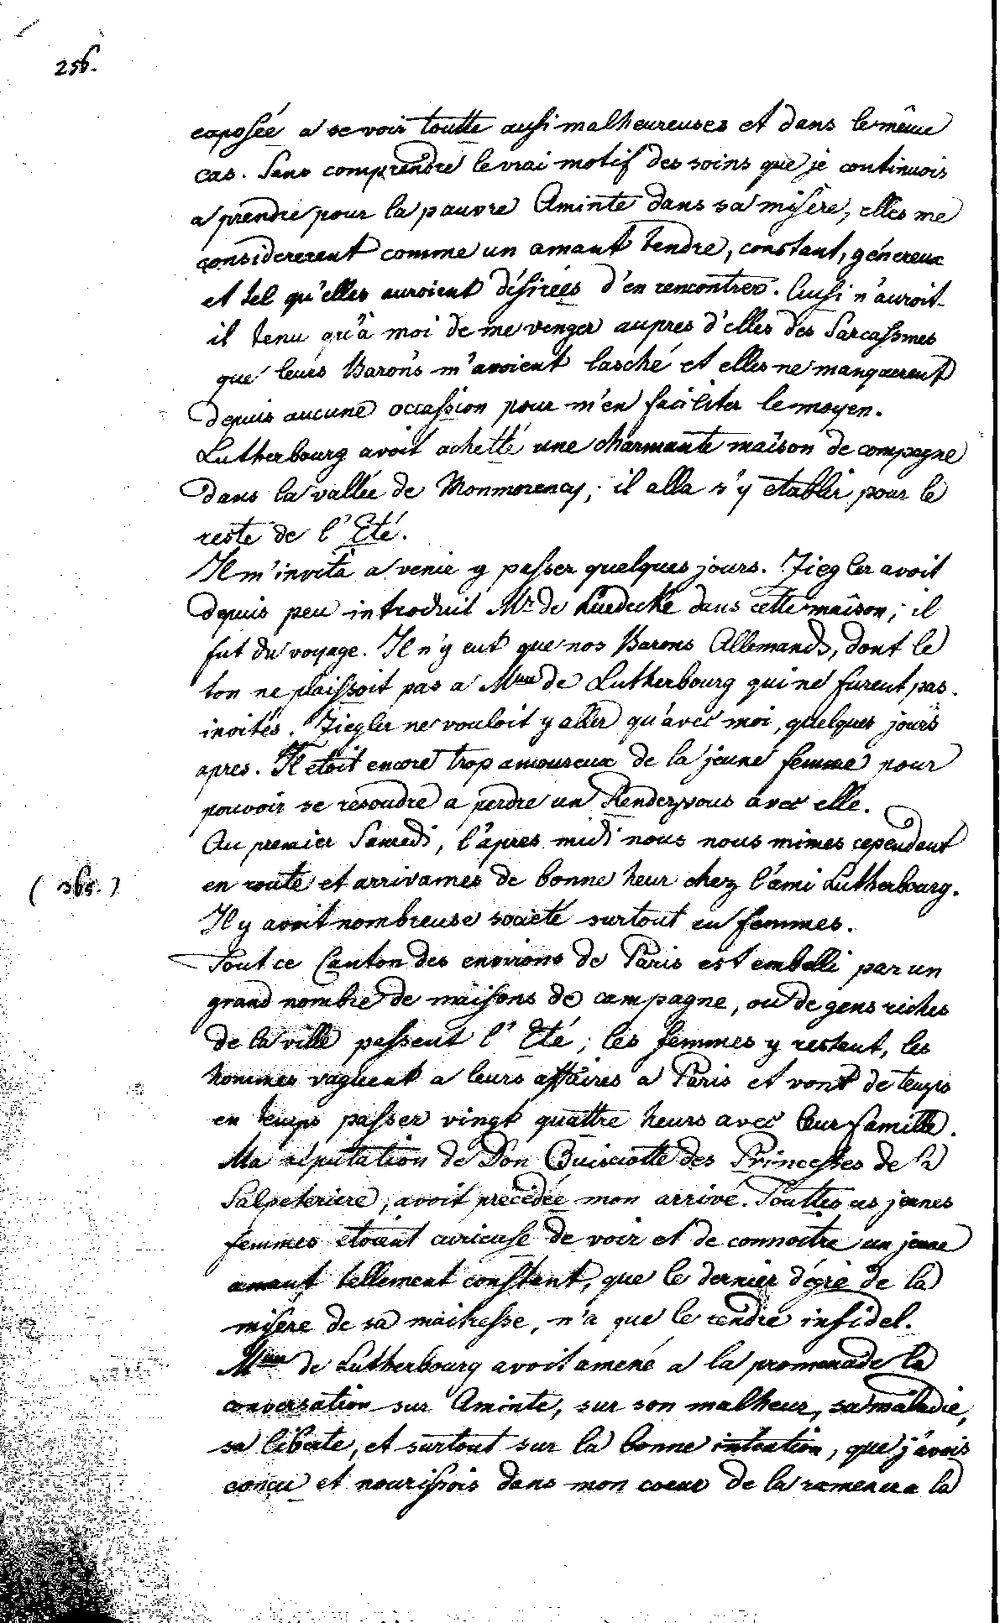 256.
exposéé a se voir toutte ausi malheureuses et dans le même
cas. Sans comprendre le vrai motif des soins que je continuois
a prendre pour la pauvre Aminte dans sa misere, elles me
considererent comme un amant tendre, constant, génereux
et tel qu'elles auroient désireés d'en rencontrer. Ausi n'auroit-
il tenu qu'à moi de me venger aupres d'elles des Sarcassmes
que leurs Barons m'avoient lasché et elles ne manquerent
depuis aucune occassion pour m'en faciliter le moyen.
Lutherbourg avoit achetté une charmante maison de compagne
dans la vallée de Monmorency; il alla s'y etablir pour le
reste de l'Eté.
Il m'invita a venir y passer quelques jours. Ziegler avoit
depuis peu introduit Mr. de Luedecke dans cette maison; il
fut du voyage. Il n'y eut que nos Barons Allemands, dont le
ton ne plaissoit pas a Mme de Lutherbourg qui ne furent pas
invités. Ziegler ne vouloit y aller qu'avec moi, quelques jours
apres. Il etoit encore trop amoureux de la jeune femme pour
pouvoir se resoudre a perdre un Rendezvous avec elle.
Au premier Samedi, l'apres midi nous nous mimes cependent
(365.) en route et arrivames de bonne heur chez l'ami Lutherbourg.
Il y avoit nombreuse societé surtout en femmes.
Tout ce Canton des environs de Paris est embelli par un
grand nombre de maisons de campagne, ou de gens riches
de la ville passent l'Eté; les femmes y restent, les
hommes vaguent a leurs affaires a Paris et vont de temps
en temps passer vingt quattre heurs avec leur famille.
Ma réputation de Don Quisciotte des Princesses de la
Salpeteriere, avoit precédéé mon arrivé. Touttes ces jeunes
femmes étoient curieuse de voir et de connoitre un jeune
amant tellement constant, que le dernier dégré de la
misere de sa maitresse, n'a que le rendre infidel.
Mme de Lutherbourg avoit amené a la promenade la
conversation sur Aminte, sur son malheur, sa maladie,
sa liberte, et surtout sur la bonne intention, que j'avois
concu et nourissois dans mon coeur de la ramener a la